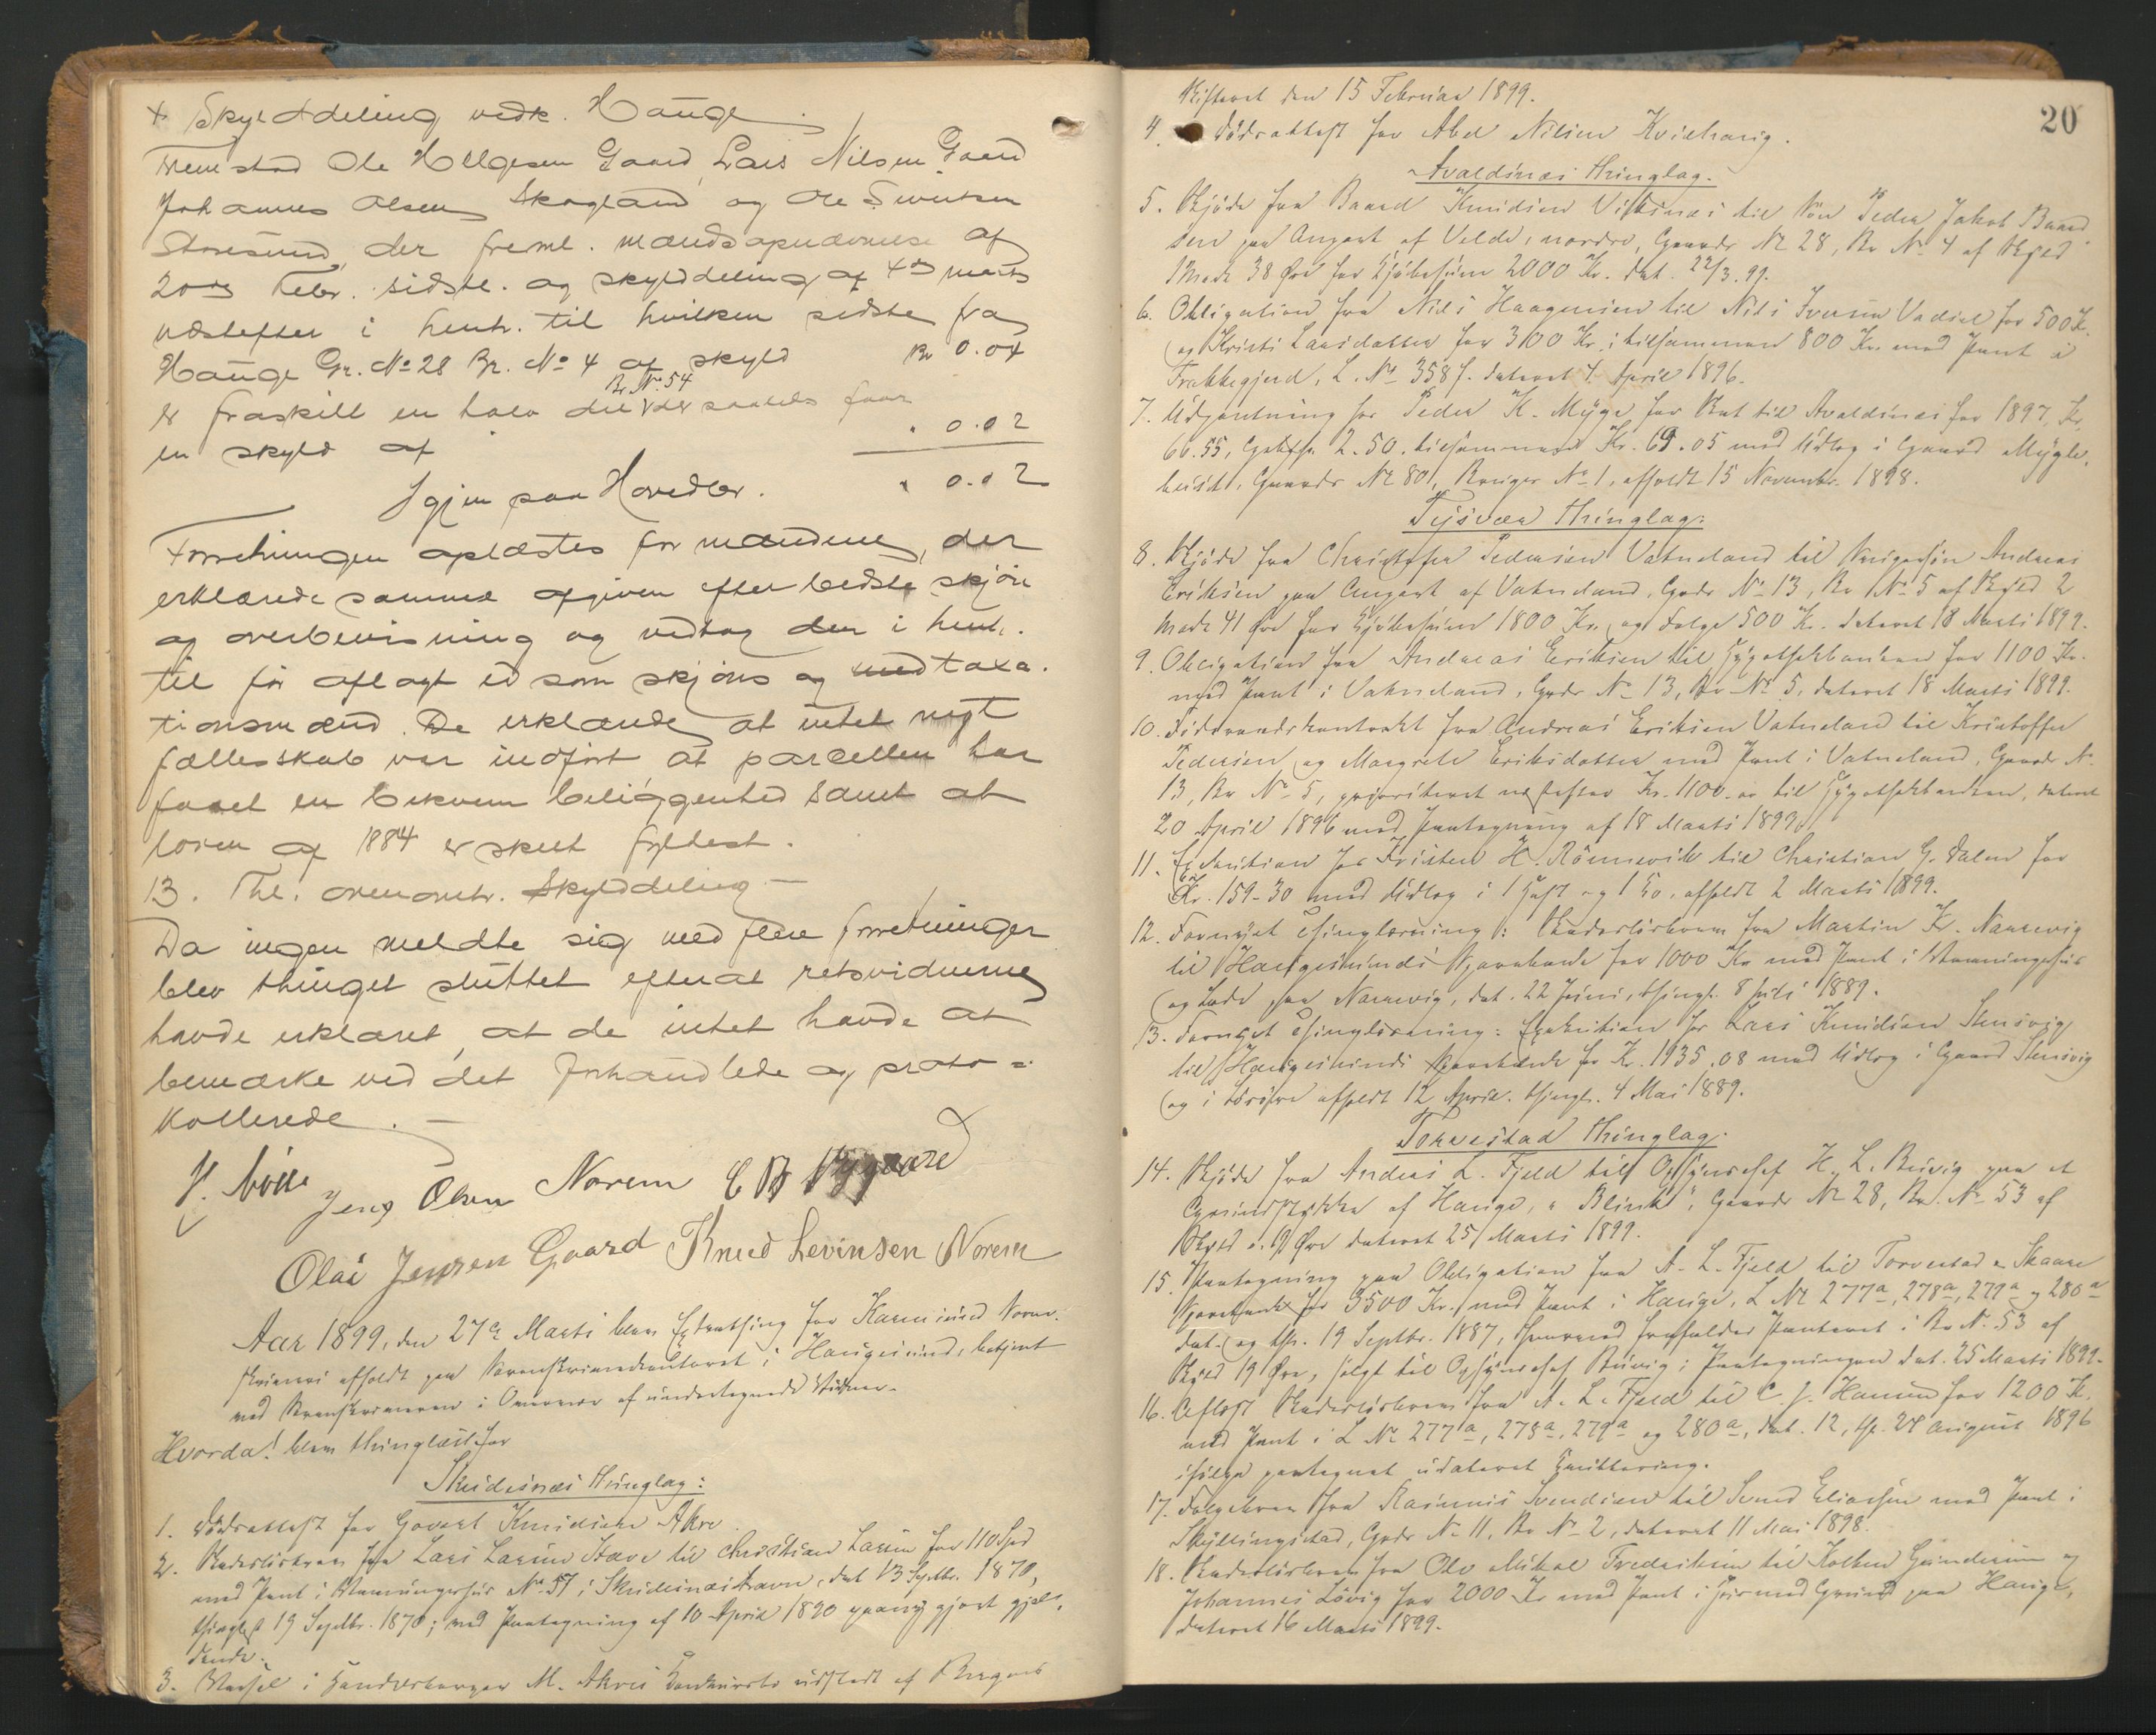 + Skylddeling vedk. Hauge
Frem stod Ole Helgesen Gaard, Lars Nilsen Gaard
Johannes Olsen Skogland og Ole Sivertsen
Storesund, der freml. mændsopnævnelse af
20de Febr. sidstl. og skylddeling af 4de marts
næstefter i henh. til hvilken sidste fra
Hauge Gr. No 28 Br. No 4 af skyld Kr 0.04
er fraskilt en halv del Br. No. 54 der saaledes faar
en skyld af " 0.02
Igjen paa Hovedbr. " 0.02
Forretningen oplæstes for mændene, der
erklærede samme afgiven efter bedste skjøn
og overbevisning og vedtog den i henh.
til før aflagt ed som skjøns og taxa-
tionsmænd. De erklærede at intet nyt
fællesskab var indført at parcellen har
faaet en bekvem beliggenhed samt at
loven af 1884 er skeet fyldest.
13. Thl. ovenomh. Skylddeling —
Da ingen meldte sig med flere forretninger
blev thinget sluttet efterat retsvidnerne
havde erklæret, at de intet havde at
bemærke ved det forhandlede og proto-
kollerede. —
Jens Olsen Norem C B Nygaard
Olai Jensen Gaard Knud Levinsen Norem
Aar 1899, den 27de Marts blev Extrathing for Karmsund Soren-
skriveri afholdt paa Sorenskriverkontoret i Haugesund, betjent
ved Sorenskriveren i Overvær af undertegnede Vidner.
Hvorda! blev thinglæst for
Skudesnæs Thinglag:
1. Dødsattest for Govert Knudsen Akre.
2. Skadesløsbrev fra Lars Larsen Stave til Christian Larsen for 110 Spd
med Pant i Vaaningshus No 57 i Skudesnæshavn, dat 13 Septbr. 1870,
thinglæst 19 Septbr. 1870; med Paategning af 10 April 1890 paany gjort gjæl-
dende.
3. Varsel i Handelsborger M. Akres Konkursbo udstedt af Bergens
20
Skifteret den 15 Februar 1899.
4. Dødsattest for Abel Nilsen Kvilhaug.
Avaldsnæs Thinglag.
5. Skjøde fra Baard Knudsen Visnæs til Søn Peder Jakob Baard-
sen paa Anpart af Velde, nordre, Gaards No 28, Br No 4 af Skyld
1 Mark 38 Øre for Kjøbesum 2000 Kr. Dat. 22/3. 99.
6. Obligation fra Nils Haagensen til Nils Iversen Vadset for 500 Kr.
og Kristi Larsdatter for 300 Kr; tilsammen 800 Kr. med Pant i
L. No 358 f. dateret 4 April 1896.
7. Udpantning hos Peder K. Myge, for Skat til Avaldsnæs for 1897, Kr.
66.55, 2.50. tilsammen Kr. 69.05 med Udlæg i Gaard Mygle-
Gaards No 80, Bruges No 1, afholdt 15 Novembr. 1898.
Tysvær Thinglag:
8. Skjøde fra Christoffer Pedersen Vatneland til Svigersøn Andreas
Eriksen paa Anpart af Vatneland, Gards No 13, Br No 5 af Skyld 2
Mark 41 Øre for Kjøbesum 1800 Kr. og Følge 500 Kr. dateret 18 Marts 1899.
9. Obligation fra Andreas Eriksen til Hypothekbanken for 1100 Kr.
med Pant i Vatneland, Gards No 13, Br No 5, dateret 18 Marts 1899.
10. Føderaadskontrakt fra Andreas Eriksen Vatneland til Kristoffer
Pedersen og Margrete Eriksdatter med Pant i Vatneland, Gaards No
13, Br No 5, prioriteret næstefter Kr. 1100 til Hypothekbanken, dateret
20 April 1896 med Paategning af 18 Marts 1899.
11. Exekution hos H. Rønnevik til Christian G. Dalen for
Kr. 159-30 med Udlæg i 1 Hest og 1 Ko, afholdt 2 Marts 1899.
12. Fornyet Thinglæsning: Skadesløsbrev fra Martin Kr. Narrevig
til Haugesunds Sparebank for 1000 Kr med Pant i Vaaningshus
og Lade paa Narrevig, dat. 22 Juni, thingl. 8 Juli 1889.
13. Fornyet Thinglæsning: Exekution hos Lars Knudsen Stensvig
til Haugesunds Sparebank for Kr. 1935.08 med Udlæg i Gaard Stensvig
og i Løsøre afholdt 12 April. thingl. 4 Mai 1889.
Torvestad Thinglag:
14. Skjøde fra Andreas L. Fjeld til Opsynschef H. L. Buvig paa et
Grundstykke af Hauge, "Blink", Gaards No 28, Br. No 53 af
Skyld 19 Øre dateret 25 Marts 1899.
15. Paategning paa Obligation fra A. L. Fjeld til Torvestad & Skaare
Sparebank for 3500 Kr. med Pant i Hauge, L No 277a, 278a, 279a og 280a
dat. og thl. 19 Septbr. 1887, hvorved frafaldes Panteret i Br No 53 af
Skyld 19 Øre, solgt til Opsynschef Buvig; Paategningen dat. 25 Marts 1899.
16. Aflyst Skadesløsbrev fra A. L. Fjeld til C. J. Hansen for 1200 Kr.
med Pant i L No 277a, 278a, 279a og 280a, dat. 12, thl. 24 August 1896
ifølge paategnet udateret Kvittering.
17. Følgebrev fra Rasmus Svendsen til Svend Eliassen med Pant i
Skyllingstad, Gards No 11, Br No 2, dateret 11 Mai 1898.
18. Skadesløsbrev fra Ole Mikal Fredriksen til Gundersen og
Johannes Løvig for 2000 Kr med Pant i Hus med Grund paa Hauge,
dateret 16 Marts 1899.